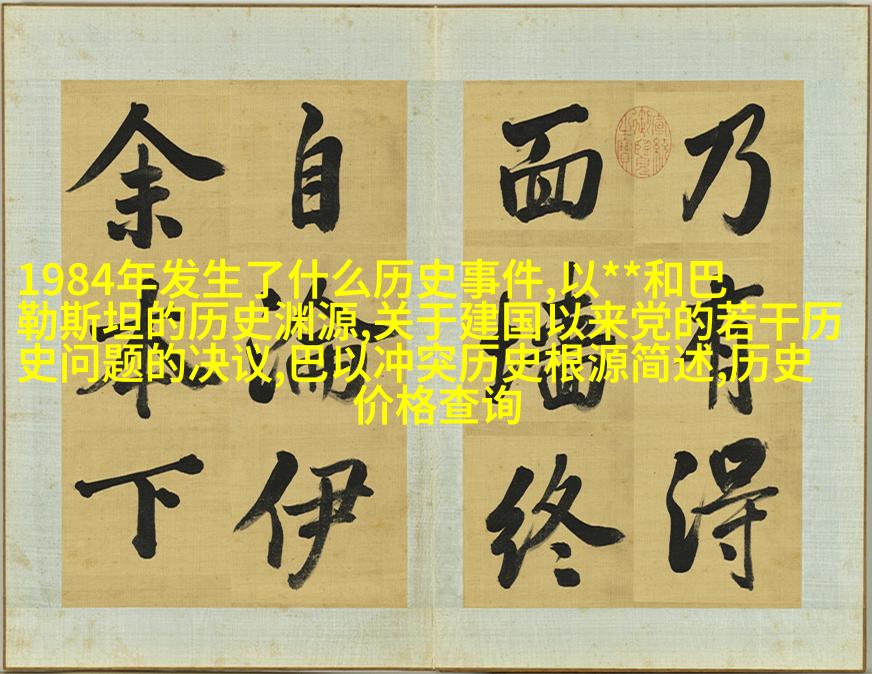 1984年发生了什么历史事件,以**和巴
勒斯坦的历史渊源,关于建国以来党的若干历
史问题的决议,巴以冲突历史根源简述,历史
价格查询
乃有得
面墙终
自淪伊
余本下